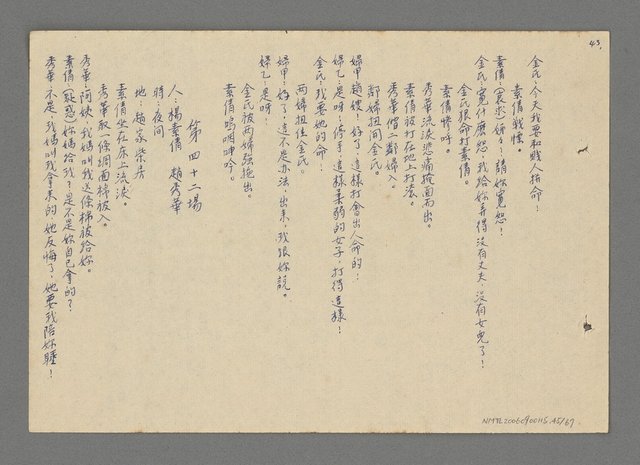 43.
金氏：今天我要和賤人拚命！
素倩戰慄。
素倩（哀求）婦々！請妳寬恕！
金氏：寬什麼恕，我給妳弄得沒有丈夫，沒有女兒了！
金氏狠命打素倩。
素倩悽呼。
秀華流淚悲痛掩面而出。
素倩被打在地上打滾。
秀華偕二鄰婦入。
鄰婦扭間金氏。
婦甲：趙嫂！好了，這樣打會出人命的！
婦乙：是呀！停手！這樣柔弱的女子，打得這樣！
金氏：我要她的命
兩婦扭住金氏。
婦甲：好了，這不是办法，出來，我跟妳說。
婦乙：是呀！
金氏被兩婦强拖出。
素倩嗚咽呻吟。
第四十二場
人：楊素倩 趙秀華
時：夜间
地：趙家柴房
素倩坐在床上流淚。
秀華取一條綢面棉被入。
秀華：阿姨，我媽叫我送條棉被給妳。
素倩（疑惑）妳媽給我？是不是妳自己拿的？
秀華：不是，我媽叫我拿來的，她反悔了，她要我陪妳睡！
NMTL20060900115.45/67